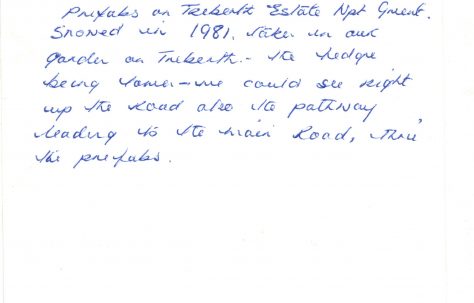 Prefabs on Treberth Estate Npt Gwent.
Snowed in 1981. Taken in our
garden on Treberth. - the hedge
being lower - we could see right
up the road also the pathway
leading to the main road, thru'
the prefabs.